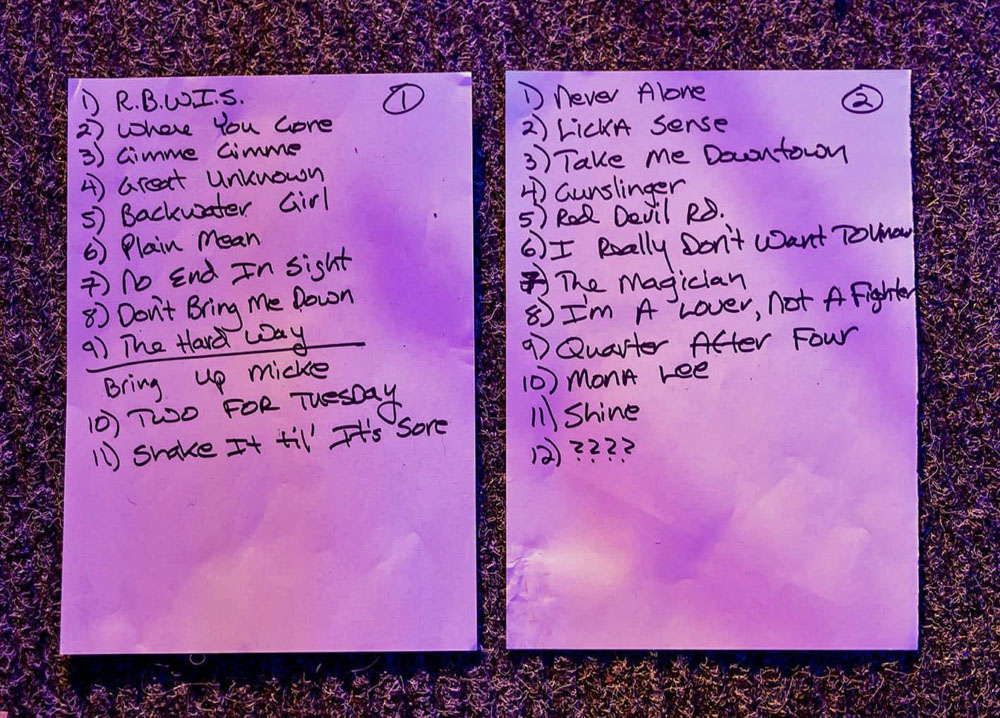 ①
1) R.B.W.I.S.
2) Where You Gone
3) Gimme Gimme
4) Great Unknown
5) Backwater Girl
6) Plain Mean
7) No End In Sight
8) Don't Bring Me Down
9) The Hard Way
Bring Up Micke
10) TWO FOR TUESDAY
11) Shake It til' It's Sore
②
1) Never Alone
2) LickA Sense
3) Take Me Downtown
4) Gunslinger
5) Red Devil Rd.
6) I Really Don't Want To Know
7) The Magician
8) I'm A Lover, Not A Fighter
9) Quarter After Four
10) MonA Lee
11) Shine
12) ????